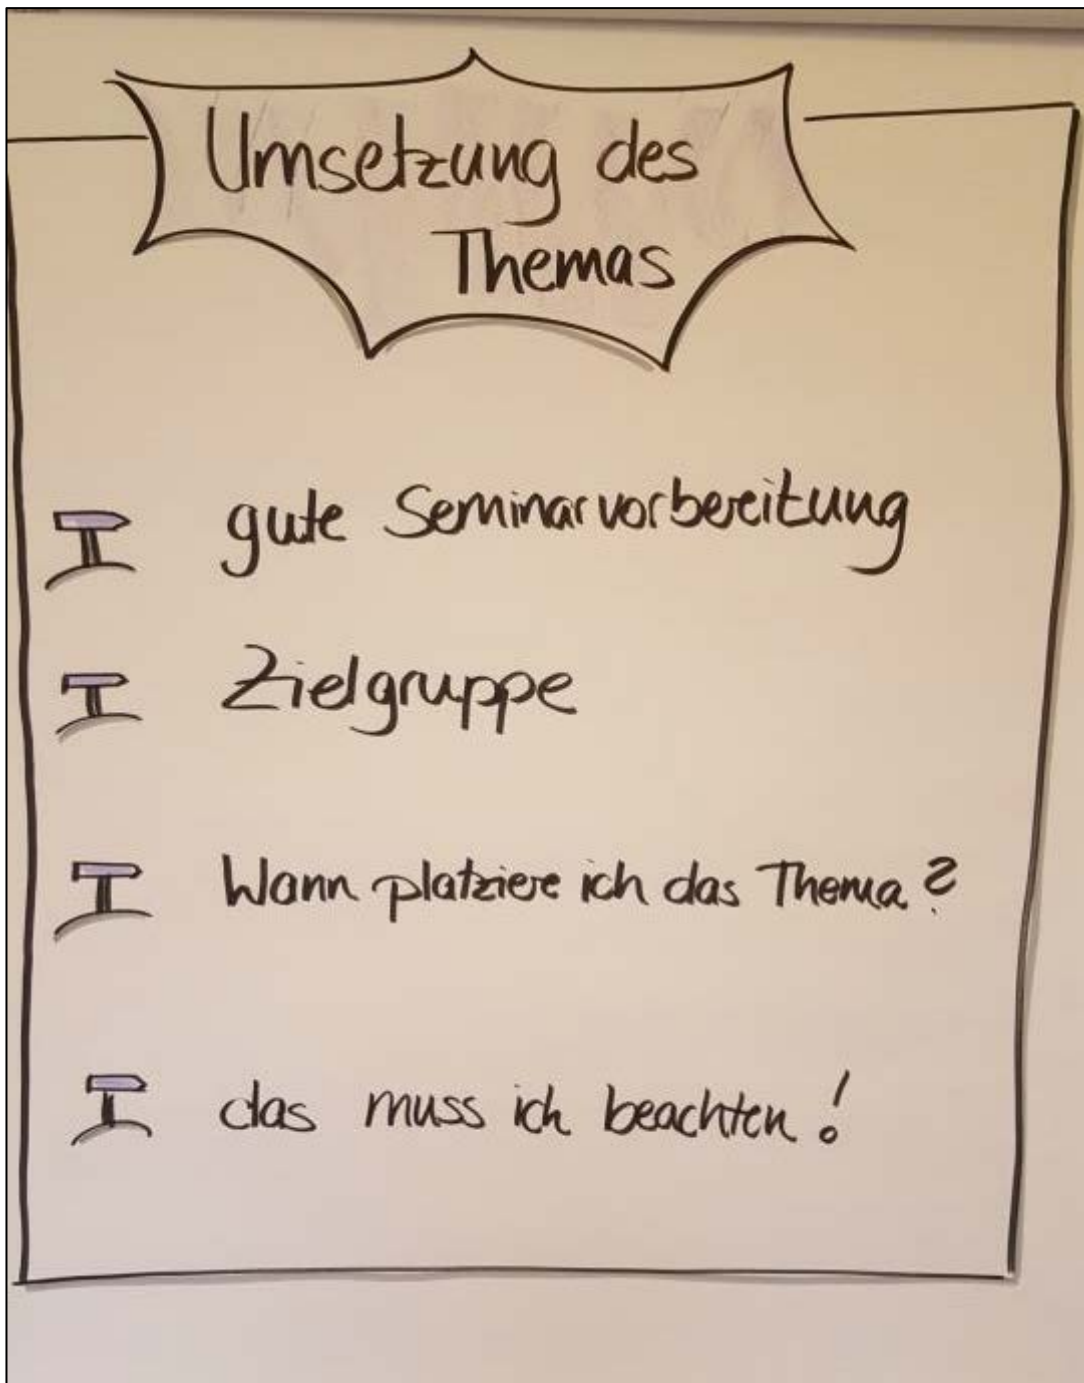 Umsetzung des
Themas
gute Seminarvorbereitung
Zielgruppe
Wann platziere ich das Thema?
das muss ich beachten!